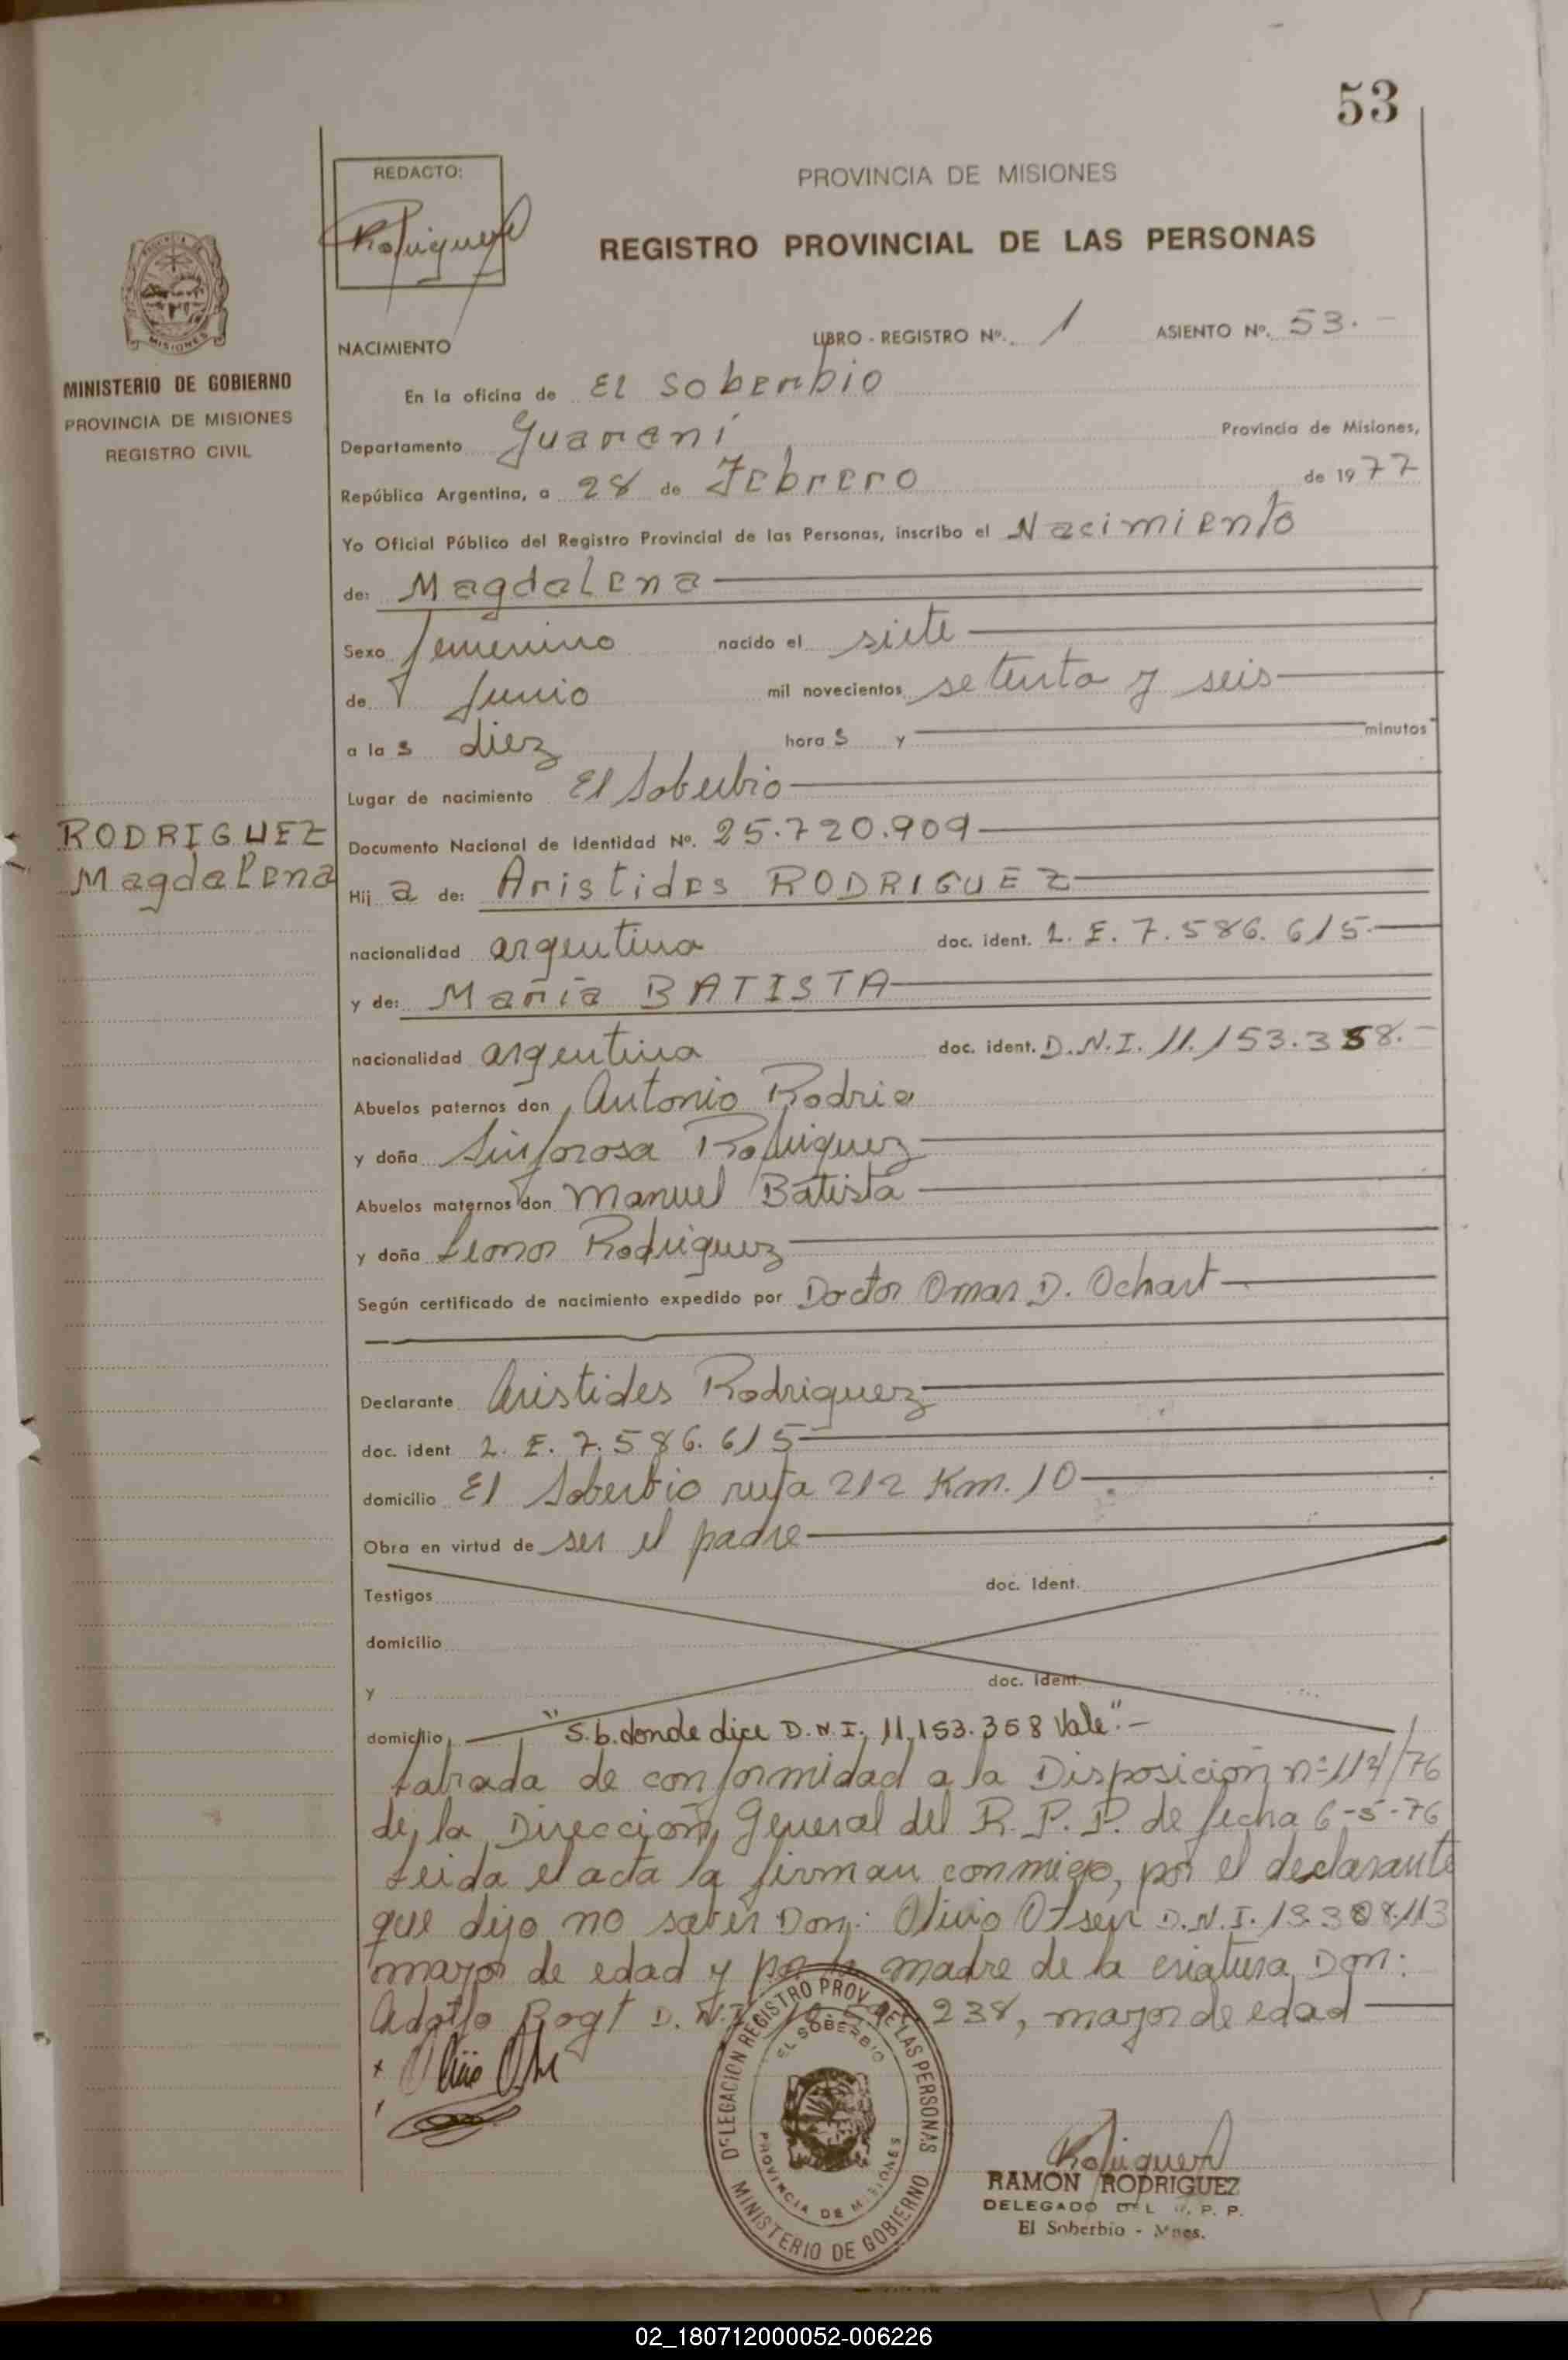 53
REDACTO:
Rodriguez
PROVINCIA DE MISIONES
REGISTRO PROVINCIAL DE LAS PERSONAS
MISIONES
MINISTERIO DE GOBIERNO
PROVINCIA DE MISIONES
REGISTRO CIVIL
NACIMIENTO
LIBRO - REGISTRO Nº. 1 ASIENTO Nº. 53.-
En la oficina de El Soberbio
Departamento Guaraní Provincia de Misiones,
República Argentina, a 28 de Febrero de 1977
Yo Oficial Público del Registro Provincial de las Personas, inscribo el Nacimiento
de: Magdalena
Sexo femenino nacido el siete
de Junio mil novecientos setenta y seis
a las diez horas y minutos
Lugar de nacimiento El Soberbio
RODRIGUEZ
Magdalena
Documento Nacional de Identidad Nº. 25.720.909
Hij a de: Aristides RODRIGUEZ
nacionalidad argentina doc. ident. L.E. 7.586.615.
y de: María BATISTA
nacionalidad argentina doc. ident. D.N.I. 11.153.358.-
Abuelos paternos don Antonio Rodrig
y doña Sinforosa Rodriguez
Abuelos maternos don Manuel Batista
y doña Leonor Rodriguez
Según certificado de nacimiento expedido por Doctor Omar D. Ochart
Declarante Aristides Rodriguez
doc. ident L.E. 7.586.615
domicilio El Soberbio ruta 212 Km. 10
Obra en virtud de ser el padre
Testigos doc. Ident.
domicilio
y doc. ident.
domicilio "S.b. donde dice D.N.I. 11.153.358 Vale".-
Labrada de conformidad a la Disposición nº 114/76
de la Dirección General del R.P.P. de fecha 6-5-76
Leida el acta la firman conmigo, por el declarante
que dijo no saber Don: Olivio D.N.I. 13.308.113
mayor de edad y por la madre de la criatura Don:
Adolfo Bogt D.N.I. 238, mayor de edad
DELEGACION REGISTRO PROV. DE LAS PERSONAS
EL SOBERBIO
PROVINCIA DE MISIONES
MINISTERIO DE GOBIERNO
Rodriguez
RAMON RODRIGUEZ
DELEGADO DEL R. P. P.
El Soberbio - Mnes.
02_180712000052-006226